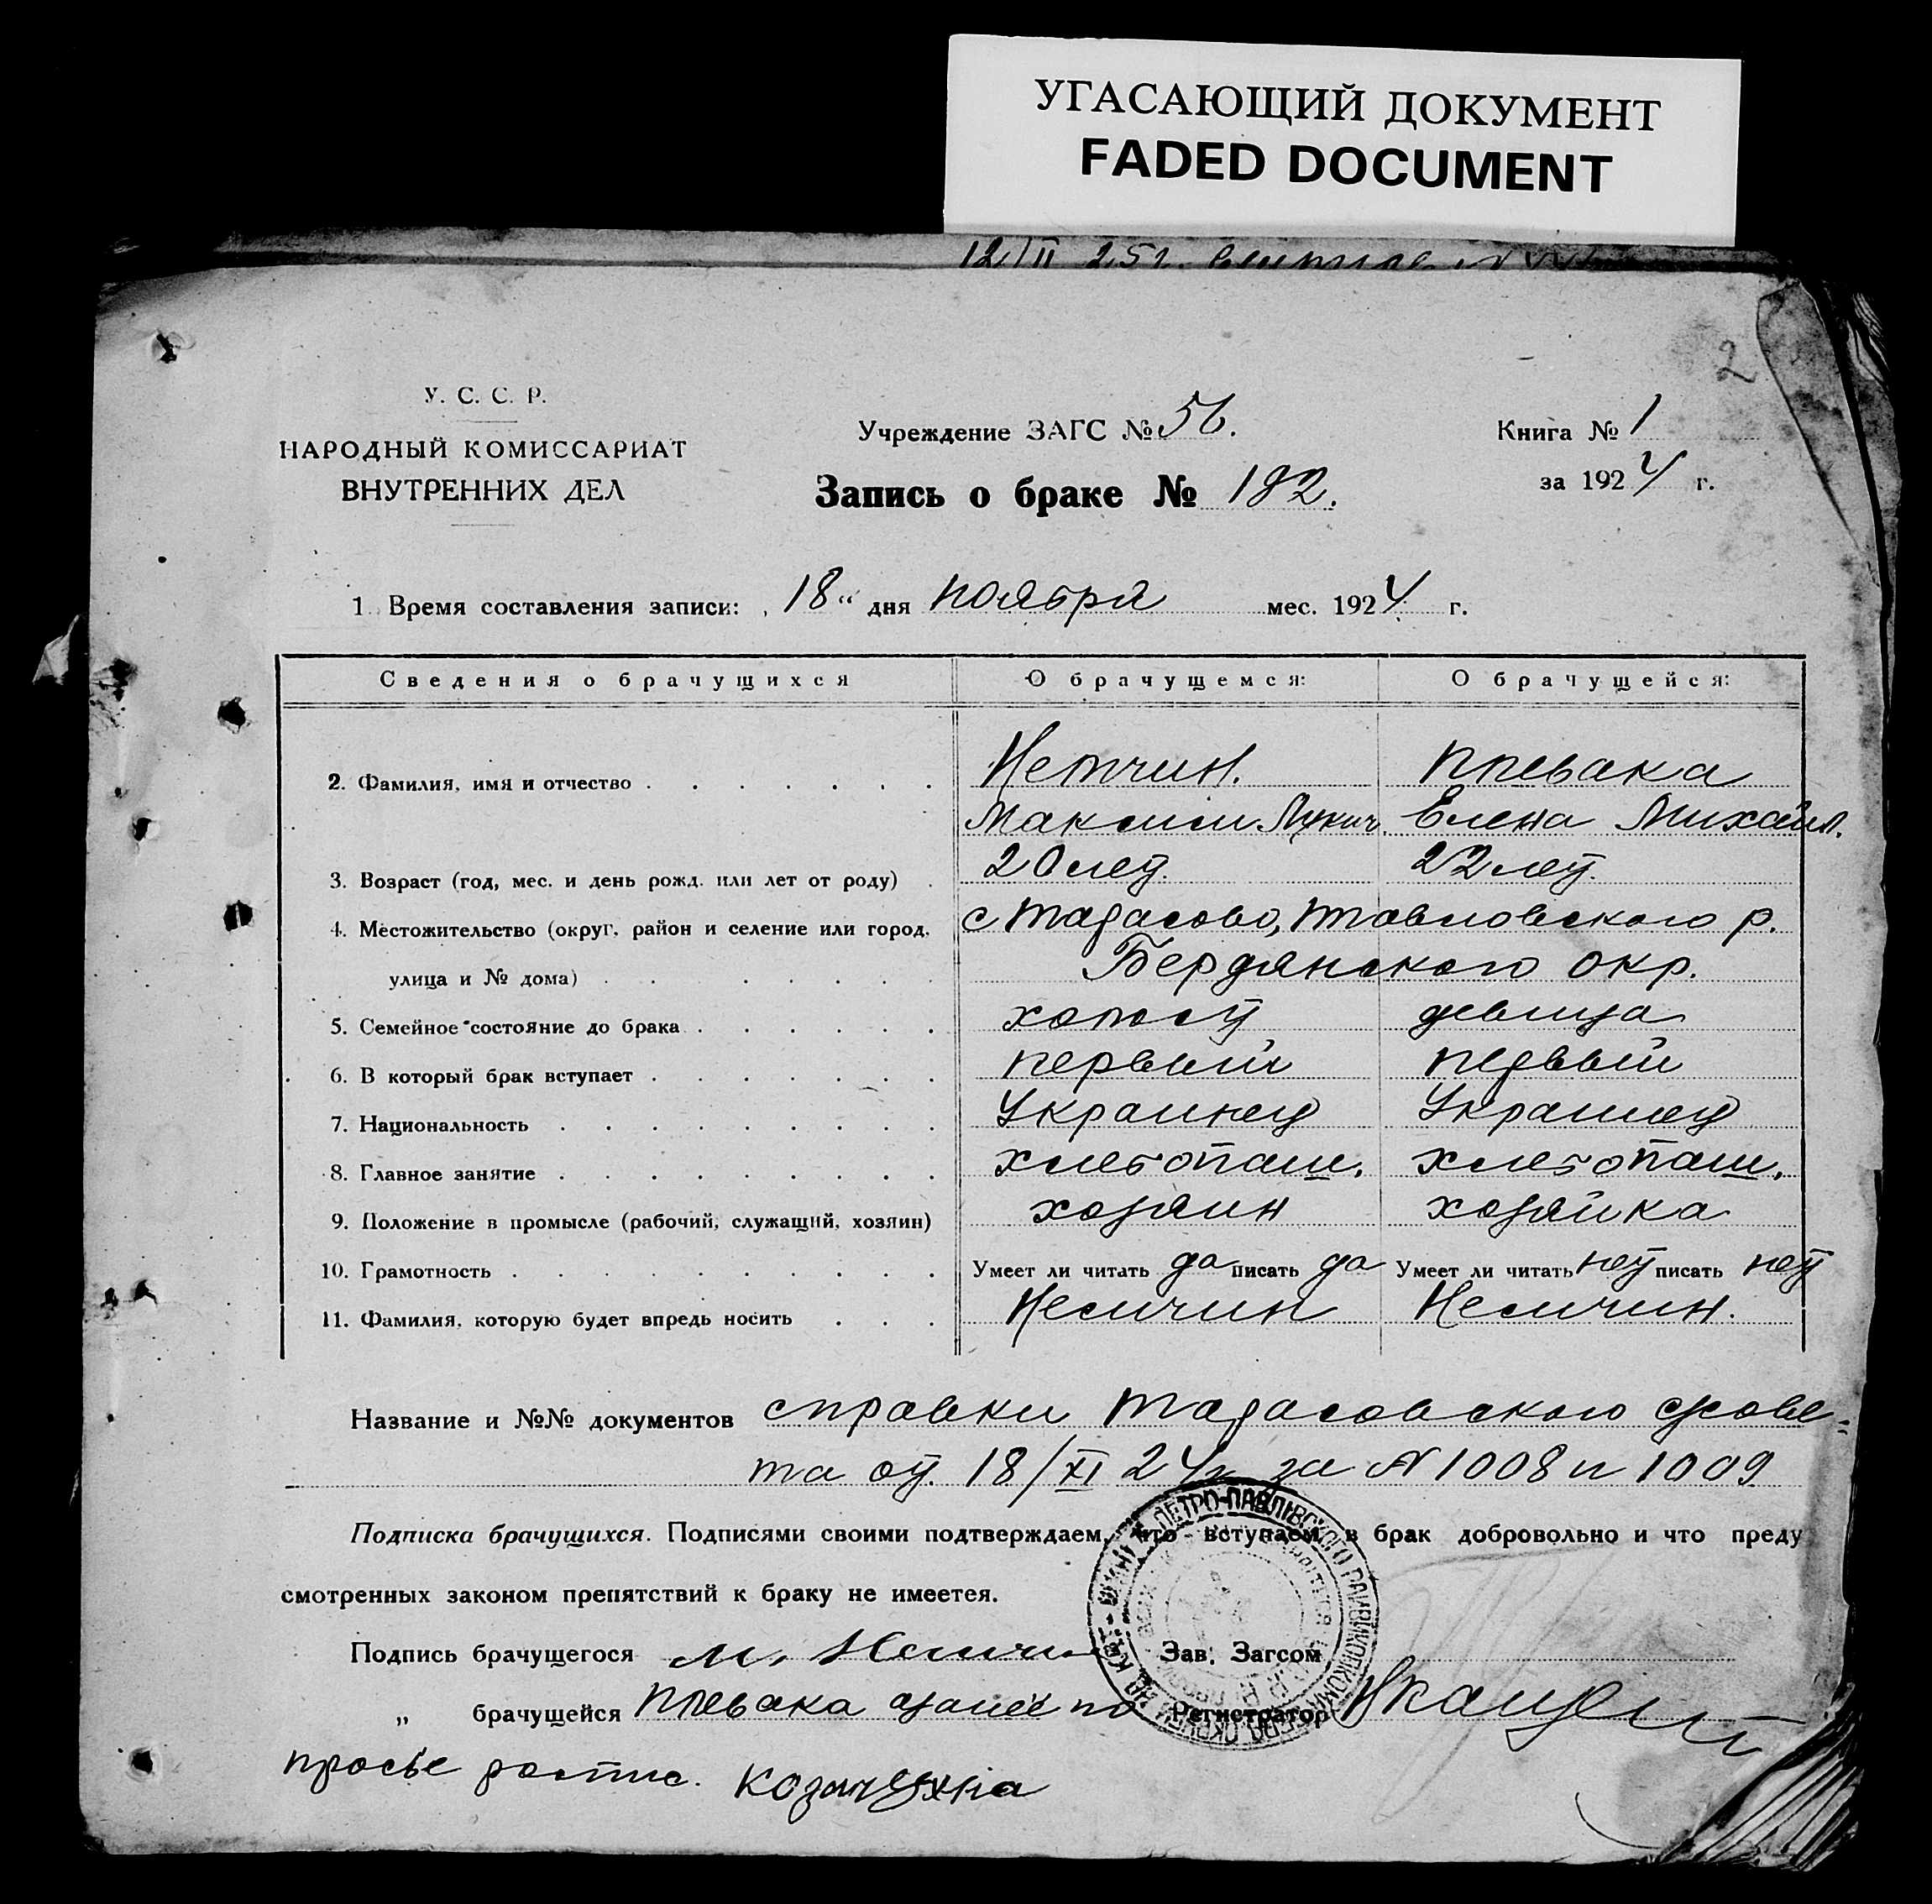 УГАСАЮЩИЙ ДОКУМЕНТ
FADED DOCUMENT
12/II 25г.
2
У. С. С. Р.
НАРОДНЫЙ КОМИССАРИАТ
ВНУТРЕННИХ ДЕЛ
Учреждение ЗАГС № 56.
Запись о браке № 192.
Книга № 1
за 1924 г.
1. Время составления записи: „18“ дня ноября мес. 1924 г.
Сведения о брачущихся О брачущемся: О брачущейся:
2. Фамилия, имя и отчество Немчин. Плевака
Максим Лукич Елена Михайл.
3. Возраст (год, мес. и день рожд. или лет от роду) 20 лет. 22 лет.
4. Местожительство (округ, район и селение или город, с Тарасово, Павловского р.
улица и № дома) Бердянского окр.
5. Семейное состояние до брака холост девица
6. В который брак вступает первый первый
7. Национальность Украинец Украинец
8. Главное занятие хлебопаш. хлебопаш.
9. Положение в промысле (рабочий, служащий, хозяин) хозяин хозяйка
10. Грамотность Умеет ли читать да писать да Умеет ли читать нет писать нет
11. Фамилия, которую будет впредь носить Немчин Немчин.
Название и №№ документов справки Тарасовского с/сове-
та от 18/XI 24г за N 1008 и 1009
Подписка брачущихся. Подписями своими подтверждаем, что вступаем в брак добровольно и что преду
смотренных законом препятствий к браку не имеется.
Подпись брачущегося М. Немчин Зав. Загсом
„ брачущейся Плевака а за неё по Регистратор
просьбе распис.